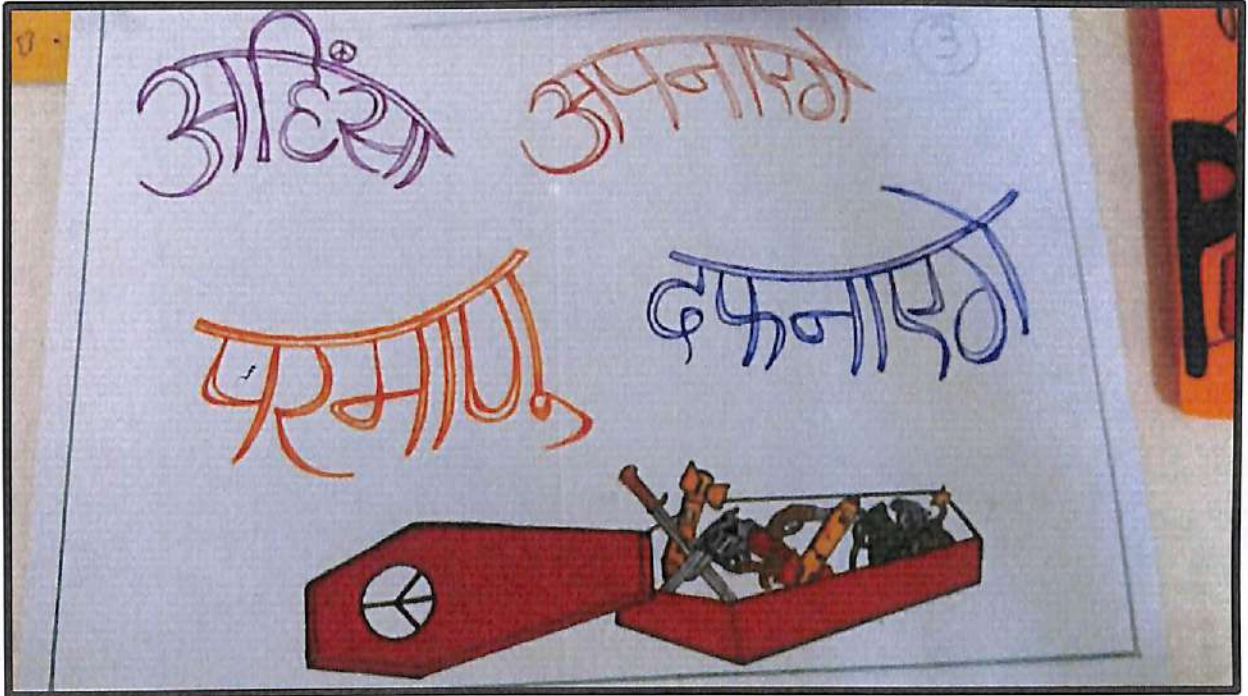 ③
अहिंसा अपनाएगे
परमाणु दफनाएगे